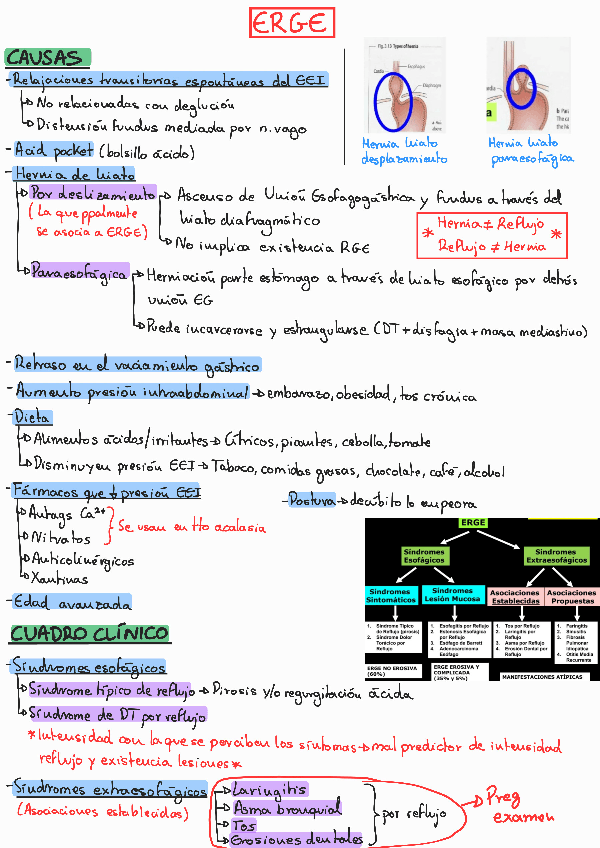 ERGE
CAUSAS
- Relajaciones transitorias espontáneas del EEI
No relacionadas con deglución
Distensión fundus mediada por n. vago
- Acid pocket (bolsillo ácido)
- Hernia de hiato
Fig. 3.13 Types of hernia
Esophagus
Cardia
Diaphragm
Hernia hiato
desplazamiento
Cardia
Hernia hiato
paraesofágica
Por deslizamiento
(La que ppalmente
se asocia a ERGE)
Ascenso de Unión Esofagogástrica y fundus a través del
hiato diafragmático
No implica existencia RGE
* Hernia ≠ Reflujo *
Reflujo ≠ Hernia
Paraesofágica
Herniación parte estómago a través de hiato esofágico por detrás
unión EG
Puede incarcerarse y estrangularse (DT + disfagia + masa mediastino)
- Retraso en el vaciamiento gástrico
- Aumento presión intraabdominal → embarazo, obesidad, tos crónica
- Dieta
Alimentos ácidos/irritantes → Cítricos, picantes, cebolla, tomate
Disminuyen presión EEI → Tabaco, comidas grasas, chocolate, café, alcohol
- Fármacos que ↓ presión EEI
Antags Ca²⁺
Nitratos
Se usan en tto acalasia
Anticolinérgicos
Xantinas
- Postura → decúbito lo empeora
- Edad avanzada
ERGE
Síndromes
Esofágicos
Síndromes
Extraesofágicos
Síndromes
Sintomáticos
Síndromes
Lesión Mucosa
Asociaciones
Establecidas
Asociaciones
Propuestas
1. Síndrome Típico
de Reflujo (pirosis)
2. Síndrome Dolor
Torácico por
Reflujo
1. Esofagitis por Reflujo
2. Estenosis Esofágica
por Reflujo
3. Esófago de Barrett
4. Adenocarcinoma
Esófago
1. Tos por Reflujo
2. Laringitis por
Reflujo
3. Asma por Reflujo
4. Erosión Dental por
Reflujo
1. Faringitis
2. Sinusitis
3. Fibrosis
Pulmonar
Idiopática
4. Otitis Media
Recurrente
ERGE NO EROSIVA
(60%)
ERGE EROSIVA Y
COMPLICADA
(35% y 5%)
MANIFESTACIONES ATÍPICAS
CUADRO CLÍNICO
- Síndromes esofágicos
Síndrome típico de reflujo → Pirosis y/o regurgitación ácida
Síndrome de DT por reflujo
*Intensidad con la que se perciben los síntomas → mal predictor de intensidad
reflujo y existencia lesiones*
- Síndromes extraesofágicos
(Asociaciones establecidas)
Laringitis
Asma bronquial
Tos
Erosiones dentales
por reflujo
Preg
examen